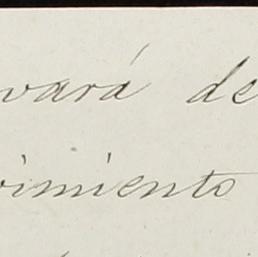 vará de
vimiento